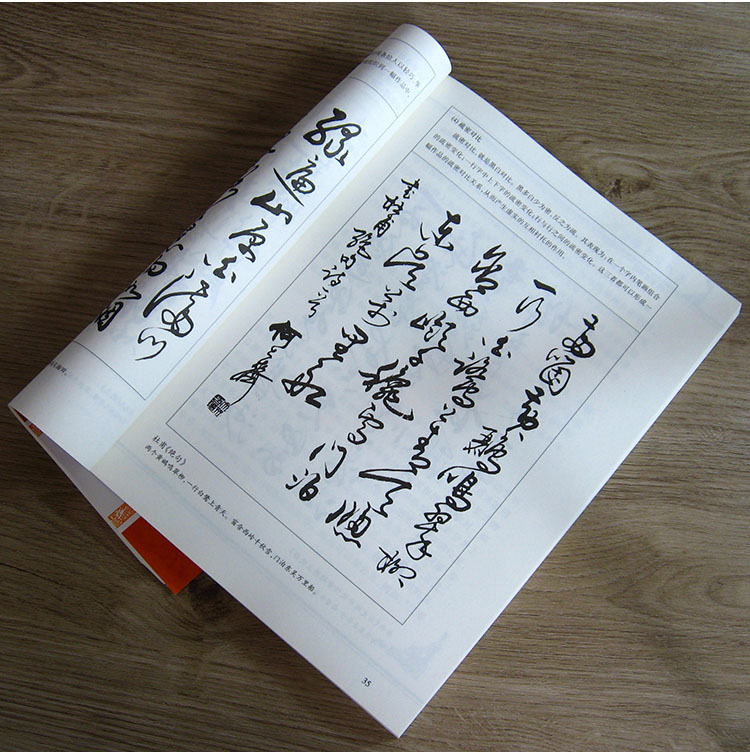 绿遍山原白满川
(4)疏密对比
疏密对比,就是黑白对比。黑多白少为密;反之为疏。其表现为:在一个字内笔画组合
的疏密变化;一行字中上下字的疏密变化;行与行之间的疏密变化。这三者都可以形成一
幅作品的疏密对比关系,从而产生虚实的互相衬托的作用。
两箇黄鹂鸣翠柳
一行白鹭上青天窗
含西岭千秋雪门泊
东吴万里船
书杜甫绝句诗一首
杜甫《绝句》
两个黄鹂鸣翠柳,一行白鹭上青天。窗含西岭千秋雪,门泊东吴万里船。
35